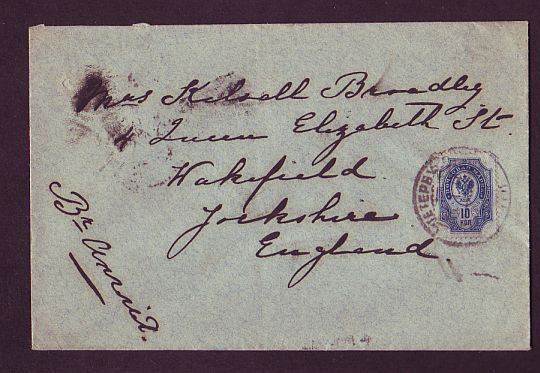 Mrs Kelsall Broadley
4 Queen Elizabeth St.
Wakefield
Yorkshire
England
ПЕТЕРБУР
10
КОП
Вг